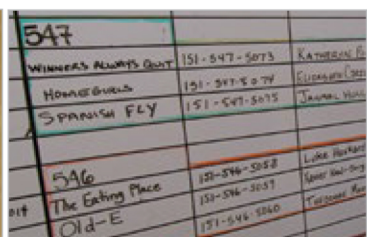 547
WINNERS ALWAYS QUIT 151-547-5073 KATHERYN
HOMEGURLS 151-547-5074 ELIZABETH
SPANISH FLY 151-547-5075 JAMAAL
546
The Eating Place 151-546-5058 Luke
Old-E 151-546-5059
151-546-5060 Theodore